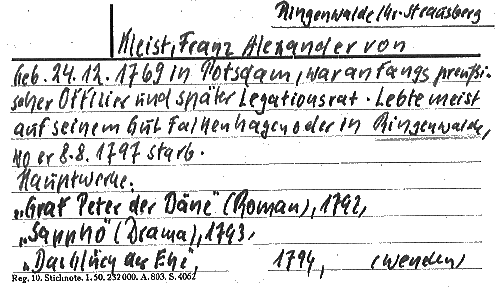 Ringenwalde/Kr. Strausberg
Kleist, Franz Alexander von
Geb. 24.12.1769 in Potsdam, war anfangs preußi-
scher Offizier und später Legationsrat. Lebte meist
auf seinem Gut Falkenhagen oder in Ringenwalde,
wo er 8.8.1797 starb.
Hauptwerke.
„Graf Peter der Däne" (Roman), 1792,
„Sappho" (Drama), 1793,
„Das Glück der Ehe", 1794, (wenden)
Reg. 10. Stichnote. 1. 50. 232000. A. 803. S. 4062